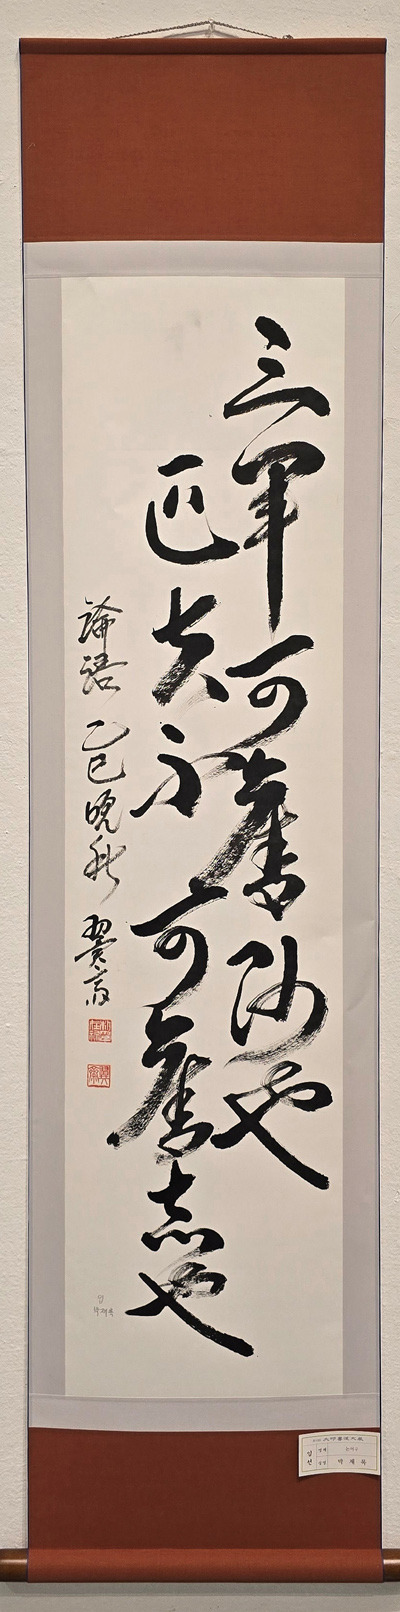 三軍可奪帥也
匹夫不可奪志也
論語 乙巳晩秋 翼
입선